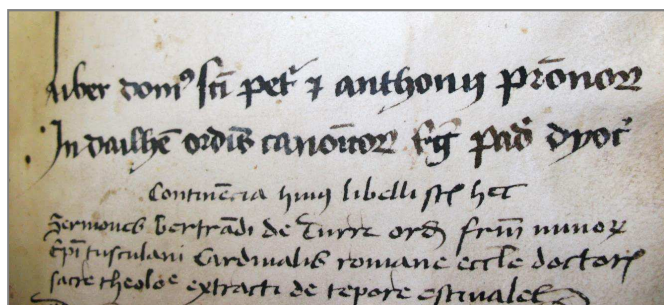 Liber dom⁹ scī petˢ ⁊ anthonij pr̄onoꝝ
In dailhē ordīs canōicoꝝ rēg pad̄ dyocˢ
Continēcia huiꝰ libelli st̄ hec
Sermones bertrādi de Turre ord̄ frm̄ minoꝝ
Ep̄i tusculani Cardinalis romane eccl̄e doctorˢ
sacre theoloᵉ extracti de tēpore estivales